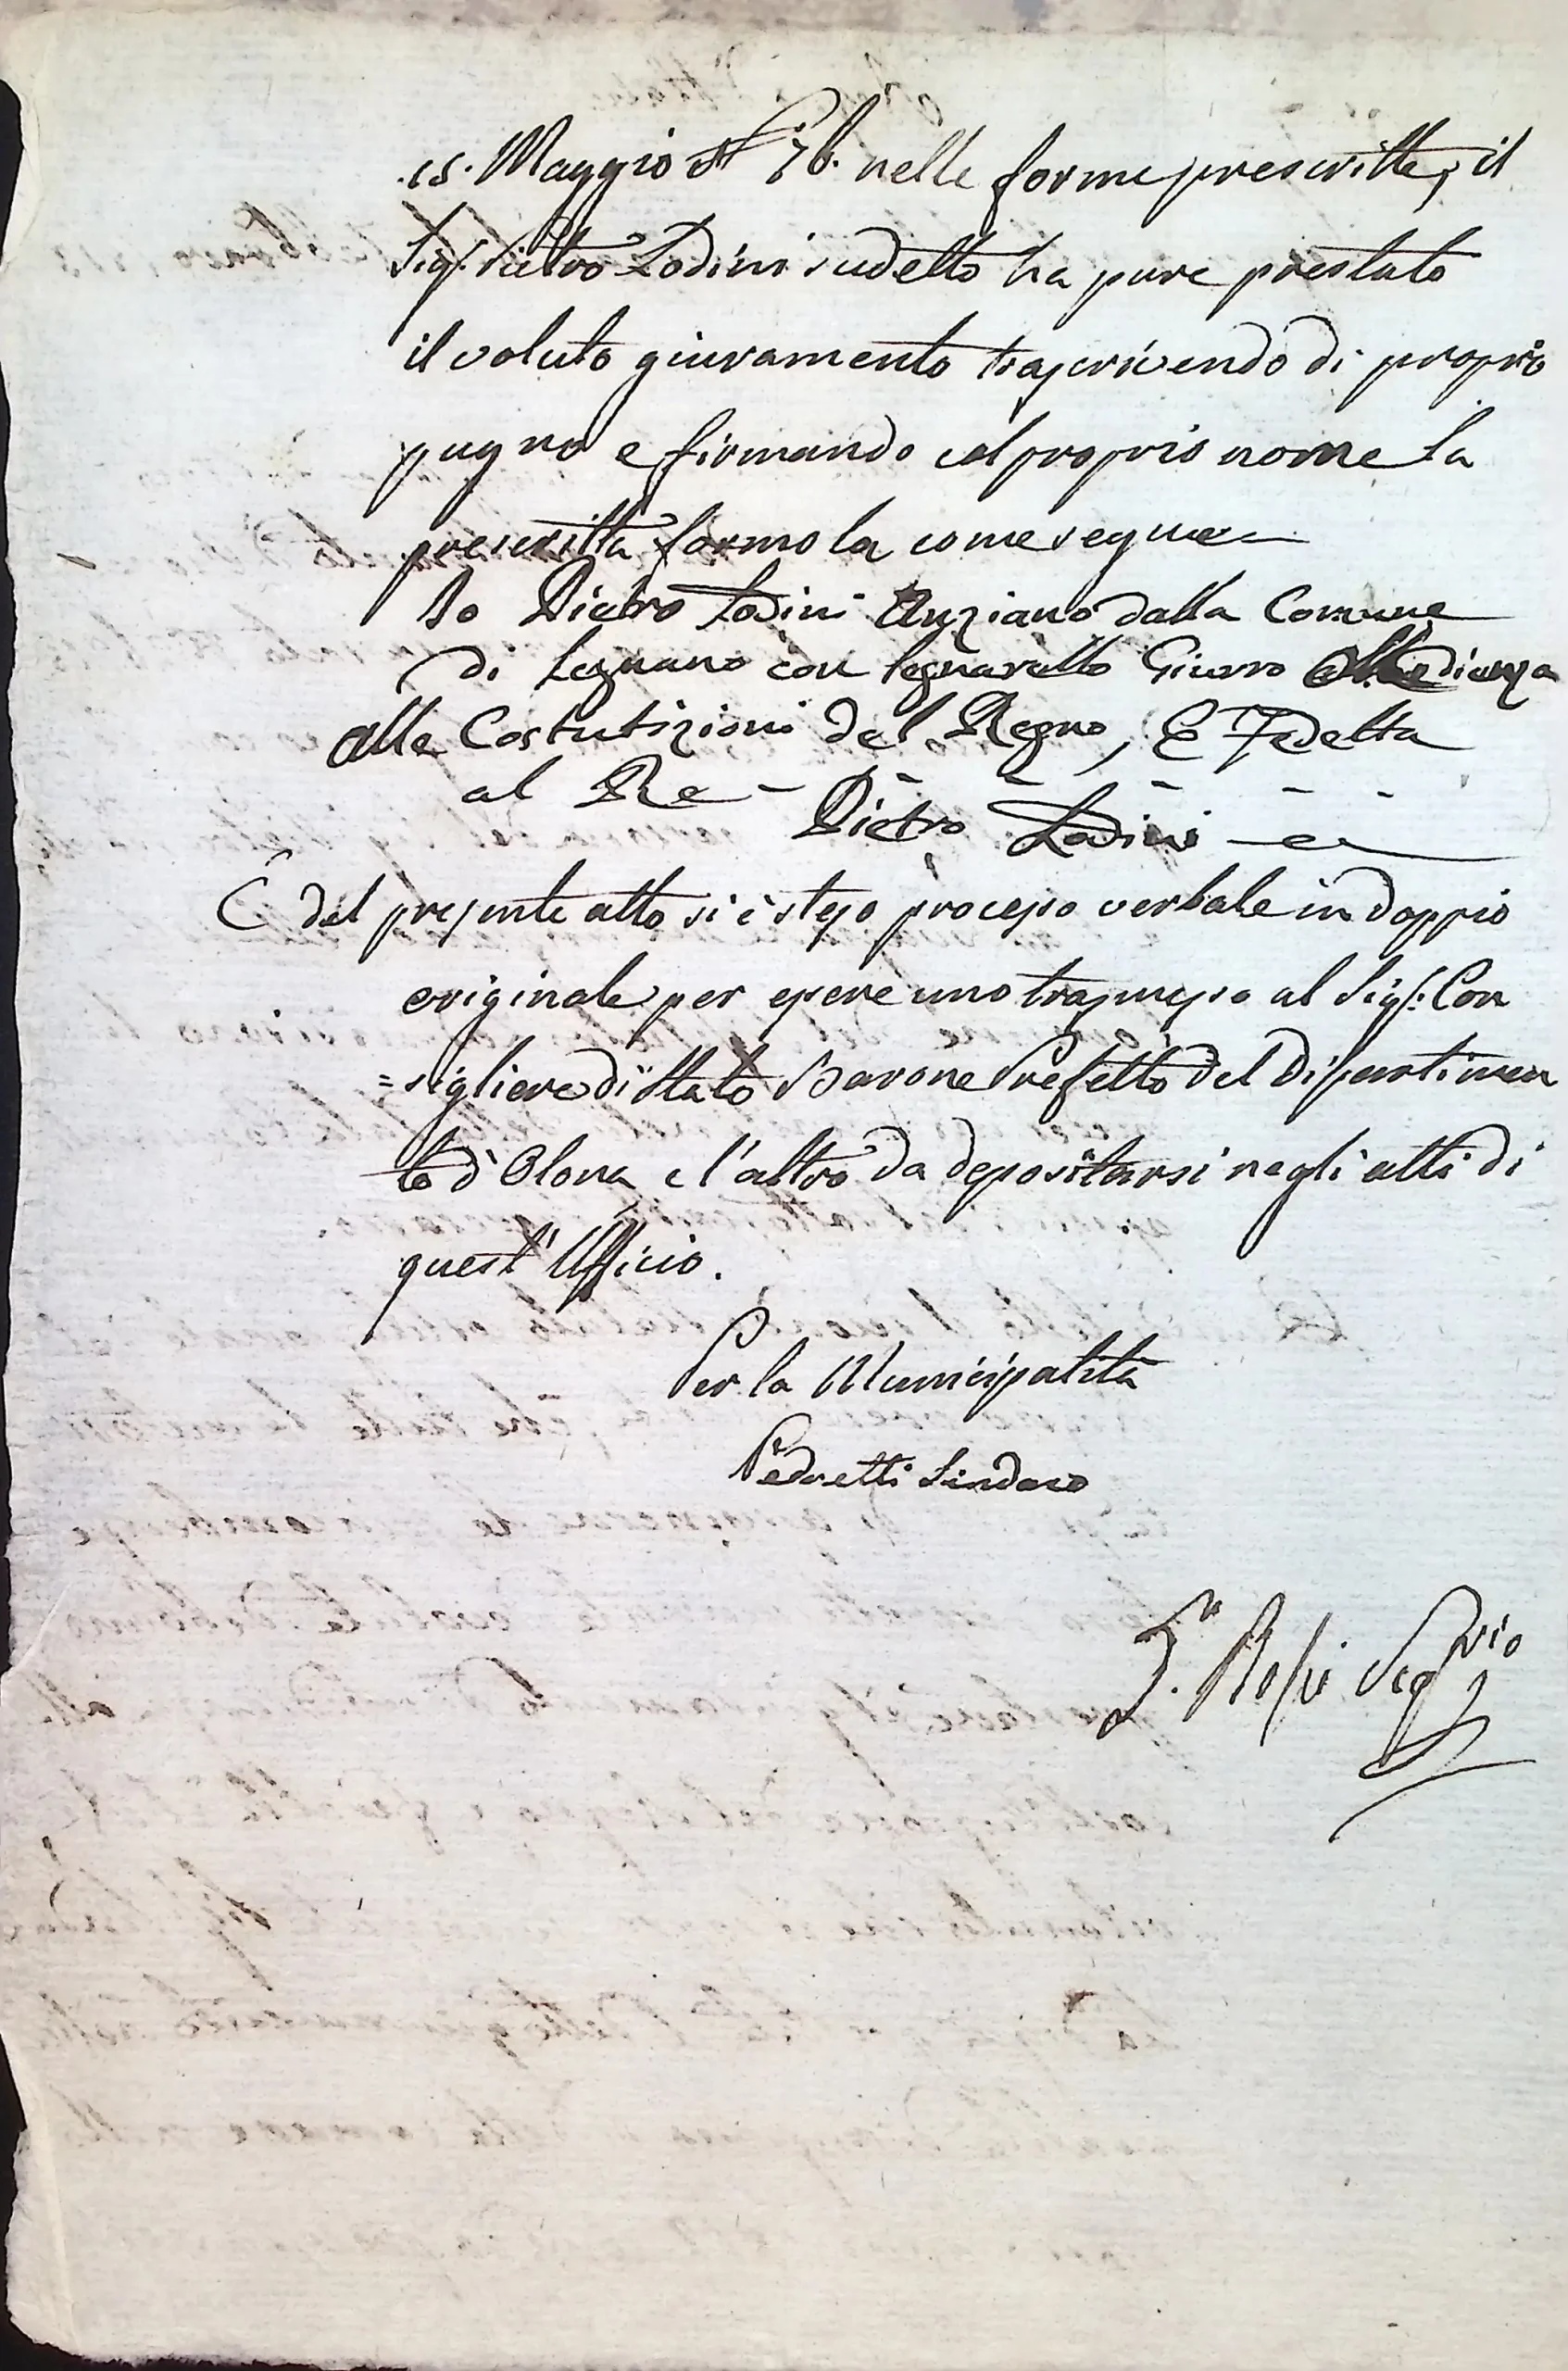 15. Maggio N.º 76. nelle forme prescritte, il
Sigr. Pietro Lodini sudetto ha pure prestato
il voluto giuramento trascrivendo di proprio
pugno e firmando col proprio nome la
prescritta formola come segue
Io Pietro Lodini Anziano dalla Comune
di Legnano con Legnarello Giurro Obbedienza
alle Costutizioni del Regno, E Fedelta
al Re - - - - - -
Pietro Lodini
E del presente atto si è steso processo verbale in doppio
originale per essere uno trasmesso al Sigr. Con
=sigliere di Stato Barone Prefetto del Dipartimen
to d'Olona, e l'altro da depositarsi negli atti di
quest'Ufficio.
Per la Municipalità
Pedretti Sindaco
Rossi Seg.rio